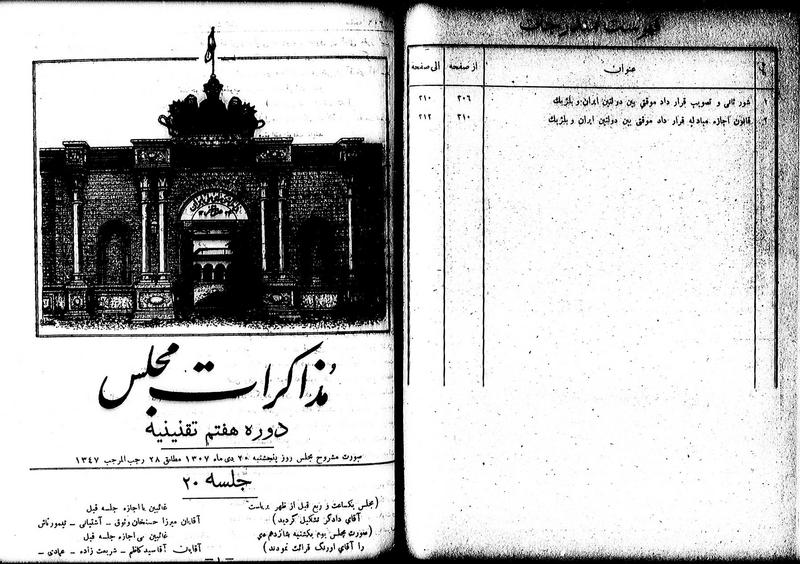 فهرست مندرجات
عنوان از صفحه الی صفحه
۱ شور ثانی و تصویب قرار داد موقتی بین دولتین ایران و بلژیك ۲۰۶ ۲۱۰
۲ قانون اجازه مبادله قرار داد موقتی بین دولتین ایران و بلژیك ۲۱۰ ۲۱۲
مذاکرات مجلس
دوره هفتم تقنینیه
صورت مشروح مجلس روز پنجشنبه ۲۰ دی ماه ۱۳۰۷ مطابق ۲۸ رجب المرجب ۱۳۴۷
جلسه ۲۰
(مجلس یکساعت و ربع قبل از ظهر بریاست
آقای دادگر تشکیل گردید)
(صورت مجلس یوم یکشنبه شانزدهم دی
را آقای اورنگ قرائت نمودند)
غائبین با اجازه جلسه قبل
آقایان میرزا حسنخان وثوق ـ آشتیانی ـ تیمورتاش
غائبین بی اجازه جلسه قبل
آقایان آقا سید کاظم ـ شریعت زاده ـ عمادی ـ
ـ ۱ ـ